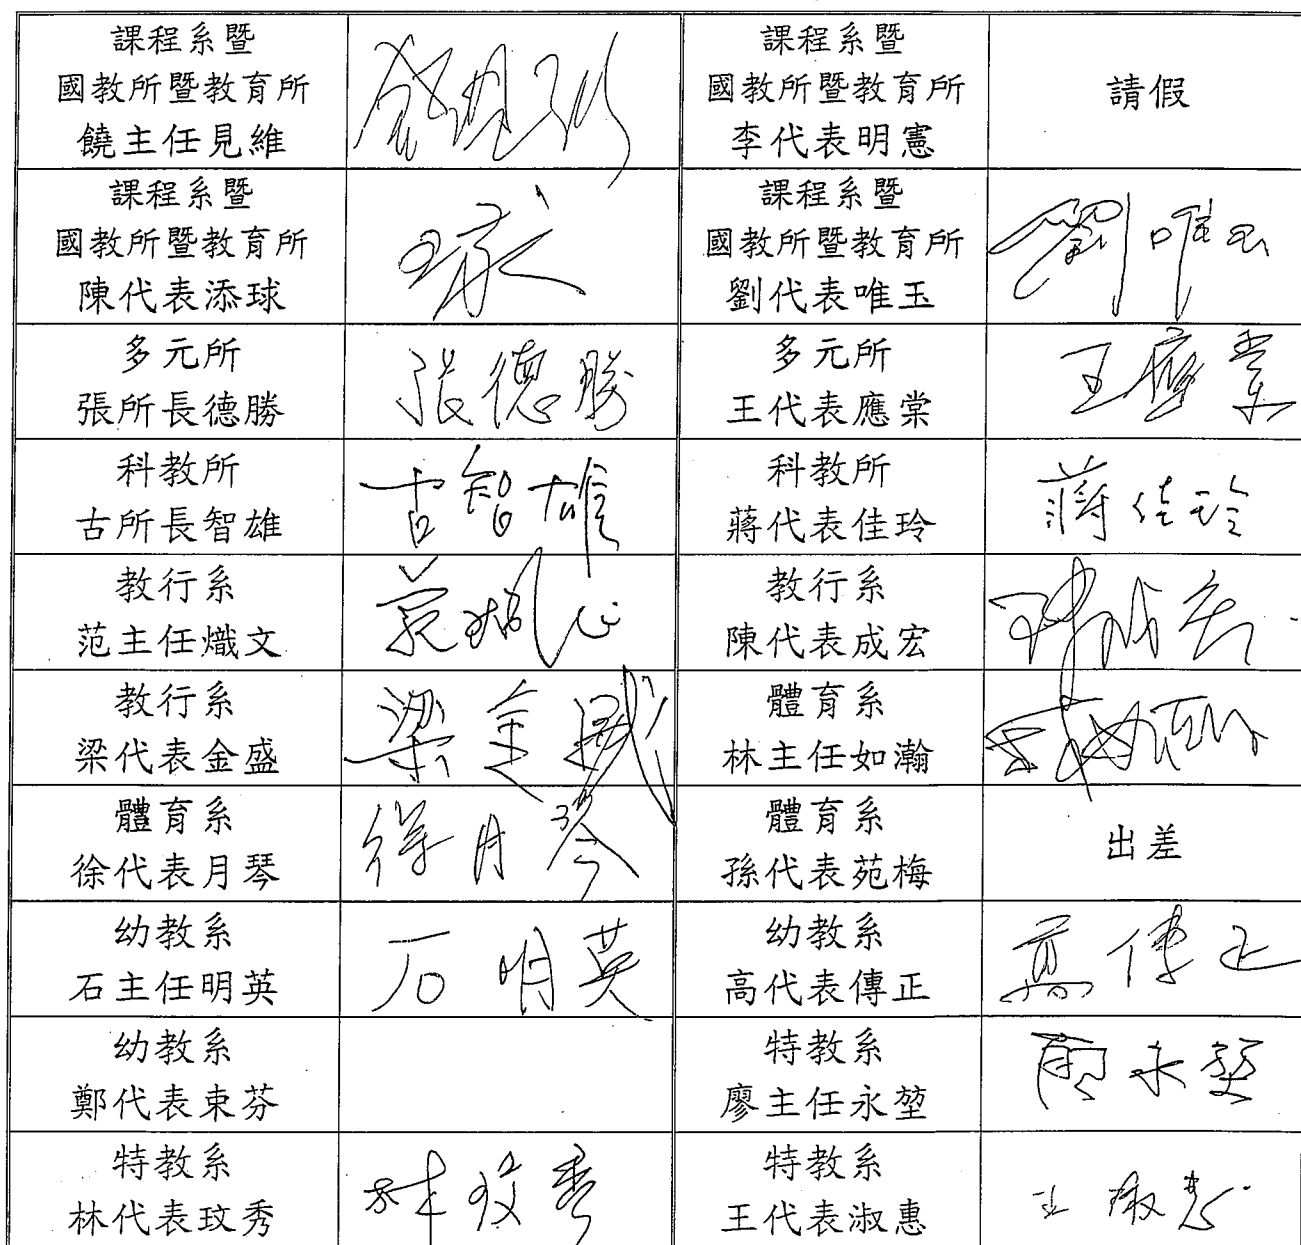 課程系暨
國教所暨教育所
饒主任見維
饒見維
課程系暨
國教所暨教育所
李代表明憲
請假
課程系暨
國教所暨教育所
陳代表添球
球
課程系暨
國教所暨教育所
劉代表唯玉
劉唯玉
多元所
張所長德勝
張德勝
多元所
王代表應棠
王應棠
科教所
古所長智雄
古智雄
科教所
蔣代表佳玲
蔣佳玲
教行系
范主任熾文
教行系
陳代表成宏
陳成宏
教行系
梁代表金盛
梁金盛
體育系
林主任如瀚
林如瀚
體育系
徐代表月琴
徐月琴
體育系
孫代表苑梅
出差
幼教系
石主任明英
石明英
幼教系
高代表傳正
高傳正
幼教系
鄭代表束芬
特教系
廖主任永堃
廖永堃
特教系
林代表玟秀
林玟秀
特教系
王代表淑惠
王淑惠